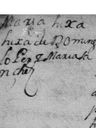 Maria hixa
hixa de Doming
o Perez Maria S
nchez